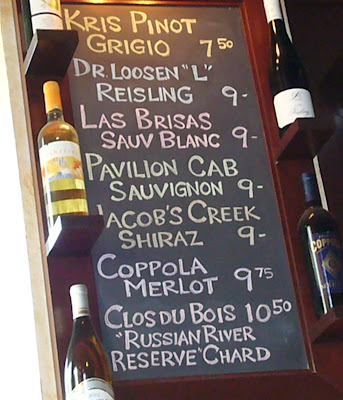 KRIS PINOT
GRIGIO 7 50
DR. LOOSEN "L"
REISLING 9-
LAS BRISAS
SAUV BLANC 9-
PAVILION CAB
SAUVIGNON 9-
JACOB'S CREEK
SHIRAZ 9-
COPPOLA
MERLOT 9 75
CLOS DU BOIS 10 50
"RUSSIAN RIVER
RESERVE" CHARD
COPPOLA